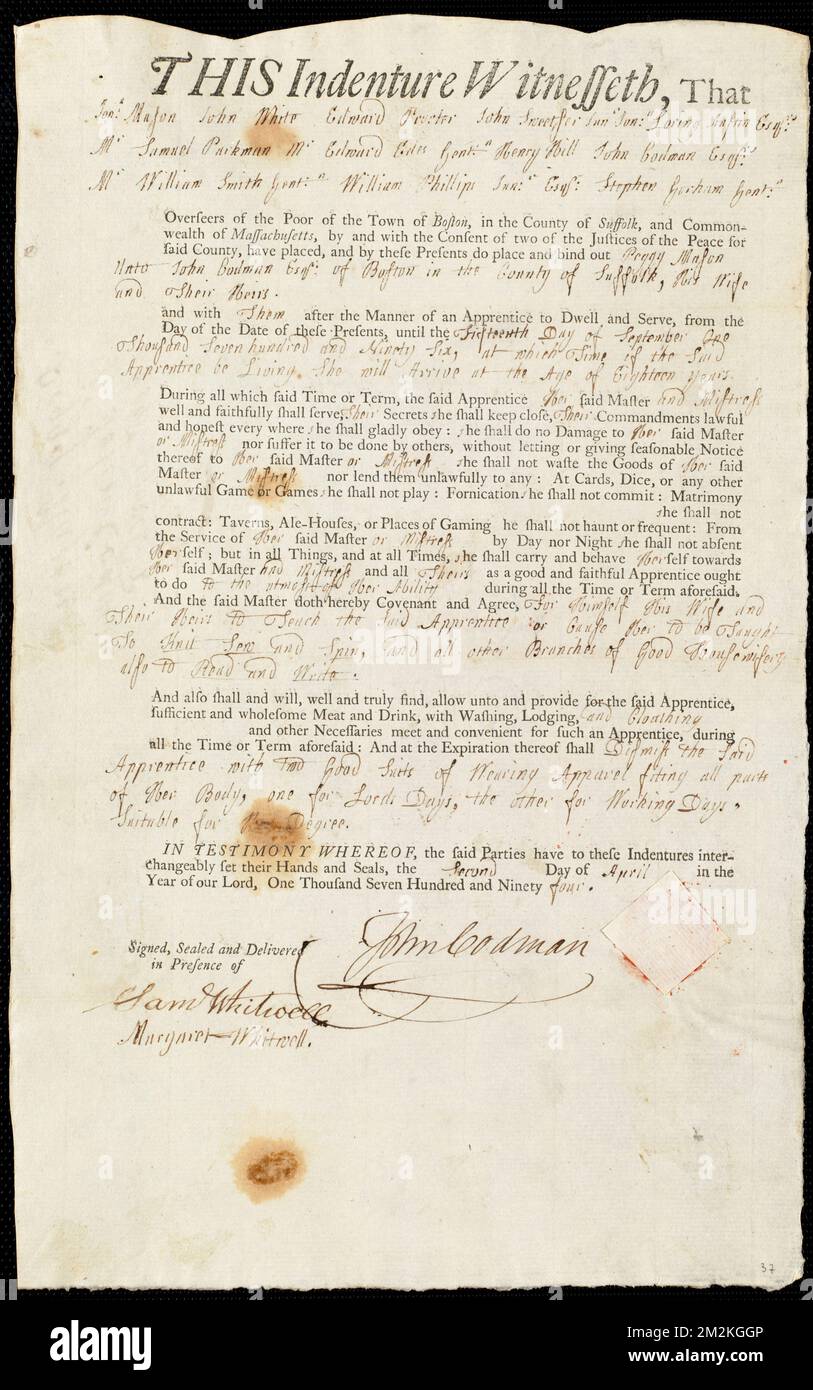 THIS Indenture Witnesseth, That
Jonª Mason John White Edward Procter John Sweetser Junʳ Jonª Loring Austin Esqʳˢ
Mʳ Samuel Parkman Mʳ Edward Edes Gentⁿ Henry Hill John Codman Esqʳˢ
Mʳ William Smith Gentⁿ William Phillips Junʳ Esqʳ Stephen Gorham Gentⁿ
Overseers of the Poor of the Town of Boston, in the County of Suffolk, and Common-
wealth of Massachusetts, by and with the Consent of two of the Justices of the Peace for
said County, have placed, and by these Presents do place and bind out Peggy Mason
Unto John Codman Esqʳ of Boston in the County of Suffolk, His Wife
and Their Heirs.
and with Them after the Manner of an Apprentice to Dwell and Serve, from the
Day of the Date of these Presents, until the Sixteenth Day of September One
Thousand Seven hundred and Ninety Six, at which Time if the Said
Apprentice be Living She will Arrive at the Age of Eighteen years.
During all which said Time or Term, the said Apprentice Her said Master and Mistress
well and faithfully shall serve, Their Secrets she shall keep close, Their Commandments lawful
and honest every where she shall gladly obey: she shall do no Damage to Her said Master
or Mistress nor suffer it to be done by others, without letting or giving seasonable Notice
thereof to Her said Master or Mistress she shall not waste the Goods of Her said
Master or Mistress nor lend them unlawfully to any: At Cards, Dice, or any other
unlawful Game or Games she shall not play: Fornication she shall not commit: Matrimony
she shall not
contract: Taverns, Ale-Houses, or Places of Gaming he shall not haunt or frequent: From
the Service of Her said Master or Mistress by Day nor Night she shall not absent
Herself; but in all Things, and at all Times, she shall carry and behave Herself towards
Her said Master and Mistress and all Theirs as a good and faithful Apprentice ought
to do to the utmost of Her Ability during all the Time or Term aforesaid.
And the said Master doth hereby Covenant and Agree, For Himself His Wife and
Their Heirs to Teach the Said Apprentice or Cause Her to be Taught
To Knit Sew and Spin, and all other Branches of Good Housewifery
also to Read and Write.
And also shall and will, well and truly find, allow unto and provide for the said Apprentice,
sufficient and wholesome Meat and Drink, with Washing, Lodging, and Cloathing
and other Necessaries meet and convenient for such an Apprentice, during
all the Time or Term aforesaid: And at the Expiration thereof shall Dismiss the Said
Apprentice with two Good Suits of Wearing Apparel fiting all parts
of Her Body, one for Lords Days, the other for Working Days,
Suitable for Her Degree.
IN TESTIMONY WHEREOF, the said Parties have to these Indentures inter-
changeably set their Hands and Seals, the Second Day of April in the
Year of our Lord, One Thousand Seven Hundred and Ninety four.
Signed, Sealed and Delivered
in Presence of
John Codman
Samˡ Whitwell
Margaret Whitwell.
37
alamy
Image ID: 2M2KGGP
www.alamy.com